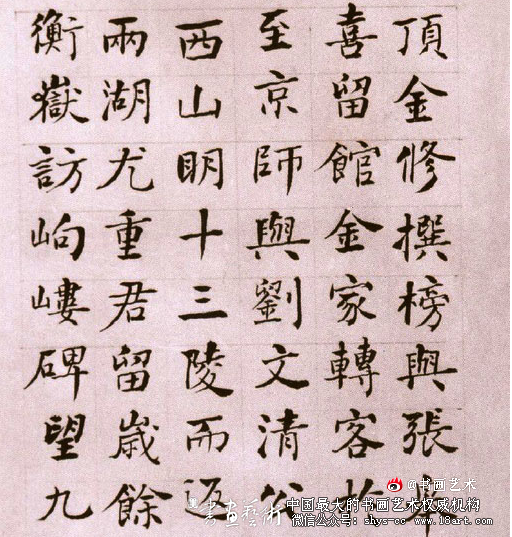 頂金修撰榜與張
喜留館金家轉客
至京師與劉文清公
西山明十三陵而
兩湖尤重君留歲餘
衡嶽訪岣嶁碑望九
@书画艺术
書畫藝術
中国最大的书画艺术权威机构
微信公众号：shys-cc www.18art.com